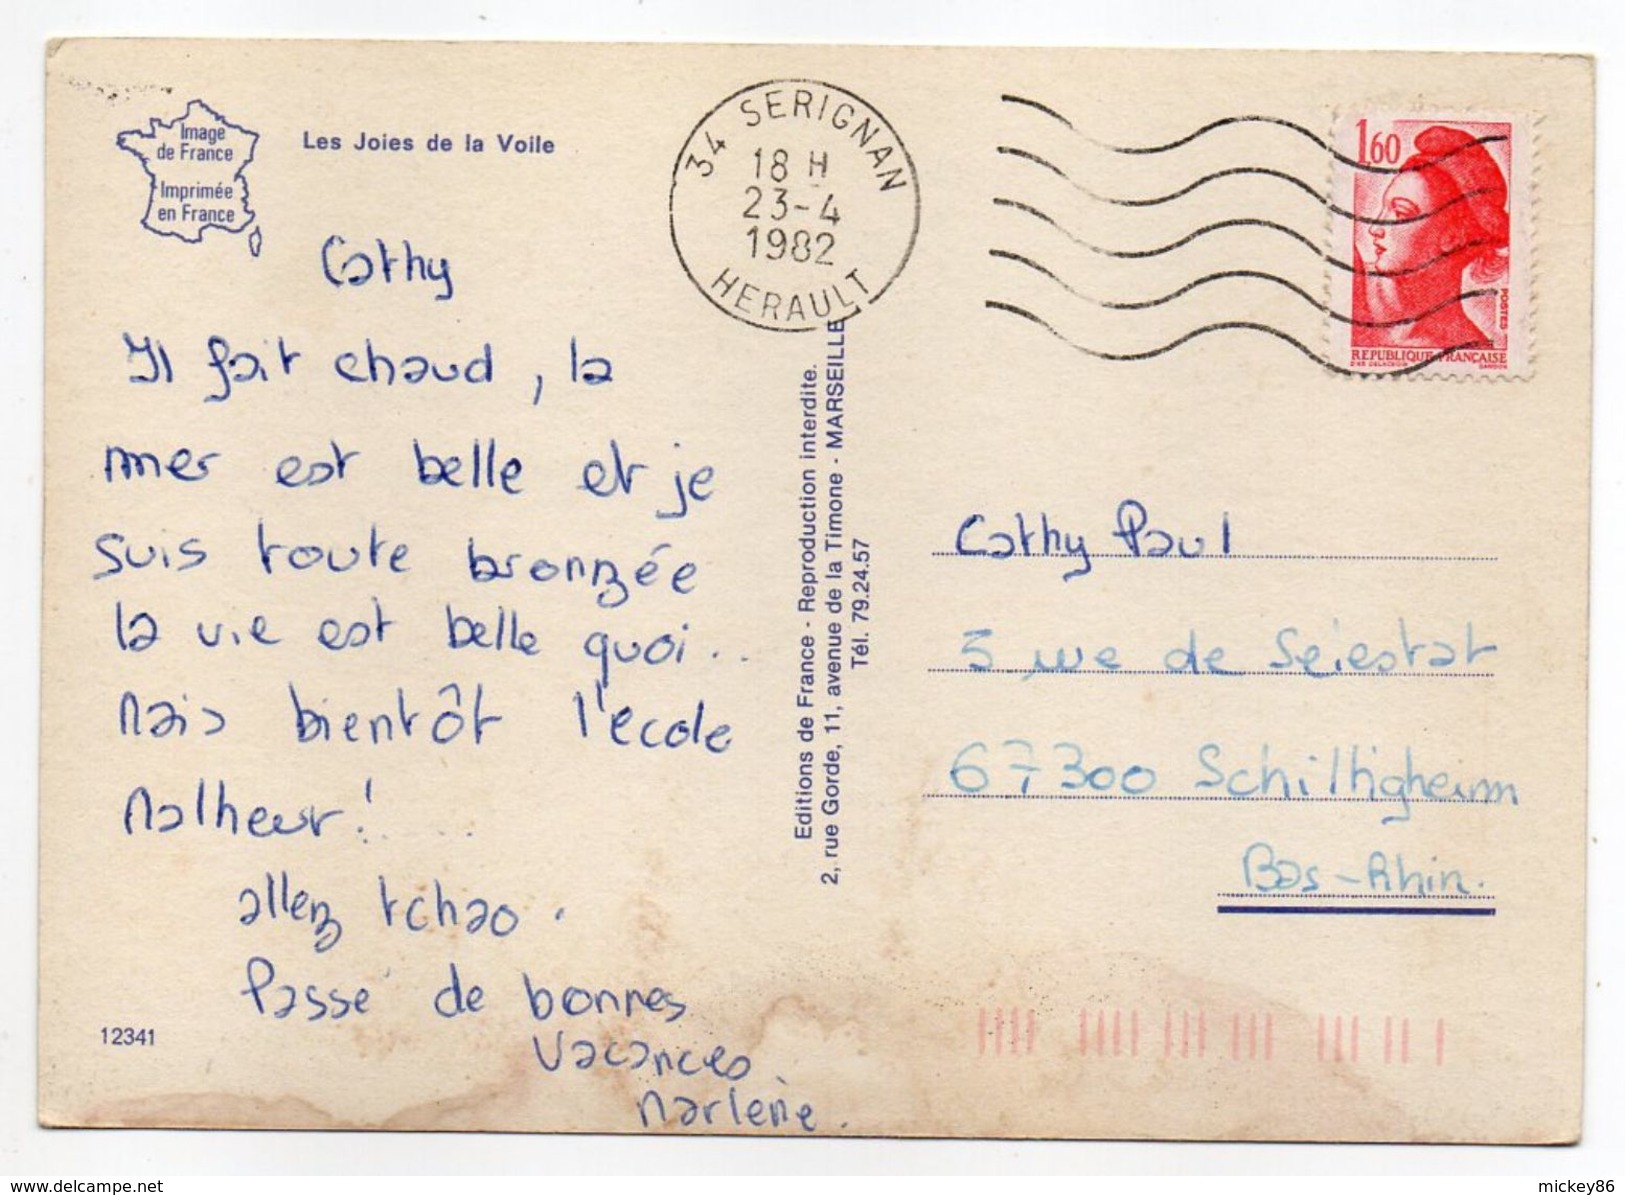 Image
de France
Imprimée
en France
Les Joies de la Voile
34 SERIGNAN
18 H
23-4
1982
HERAULT
1,60
POSTES
REPUBLIQUE FRANÇAISE
D'AP. DELACROIX GANDON
Cathy
Il fait chaud, la
mer est belle et je
suis toute bronzée
la vie est belle quoi..
Mais bientôt l'ecole
Malheur!.....
allez tchao.
Passe de bonnes
vacances.
Marlène.
12341
Editions de France - Reproduction interdite.
2, rue Gorde, 11, avenue de la Timone - MARSEILLE
Tél. 79.24.57
Cathy Paul
rue de Sélestat
67300 Schiltigheim
Bas-Rhin.
www.delcampe.net
mickey86